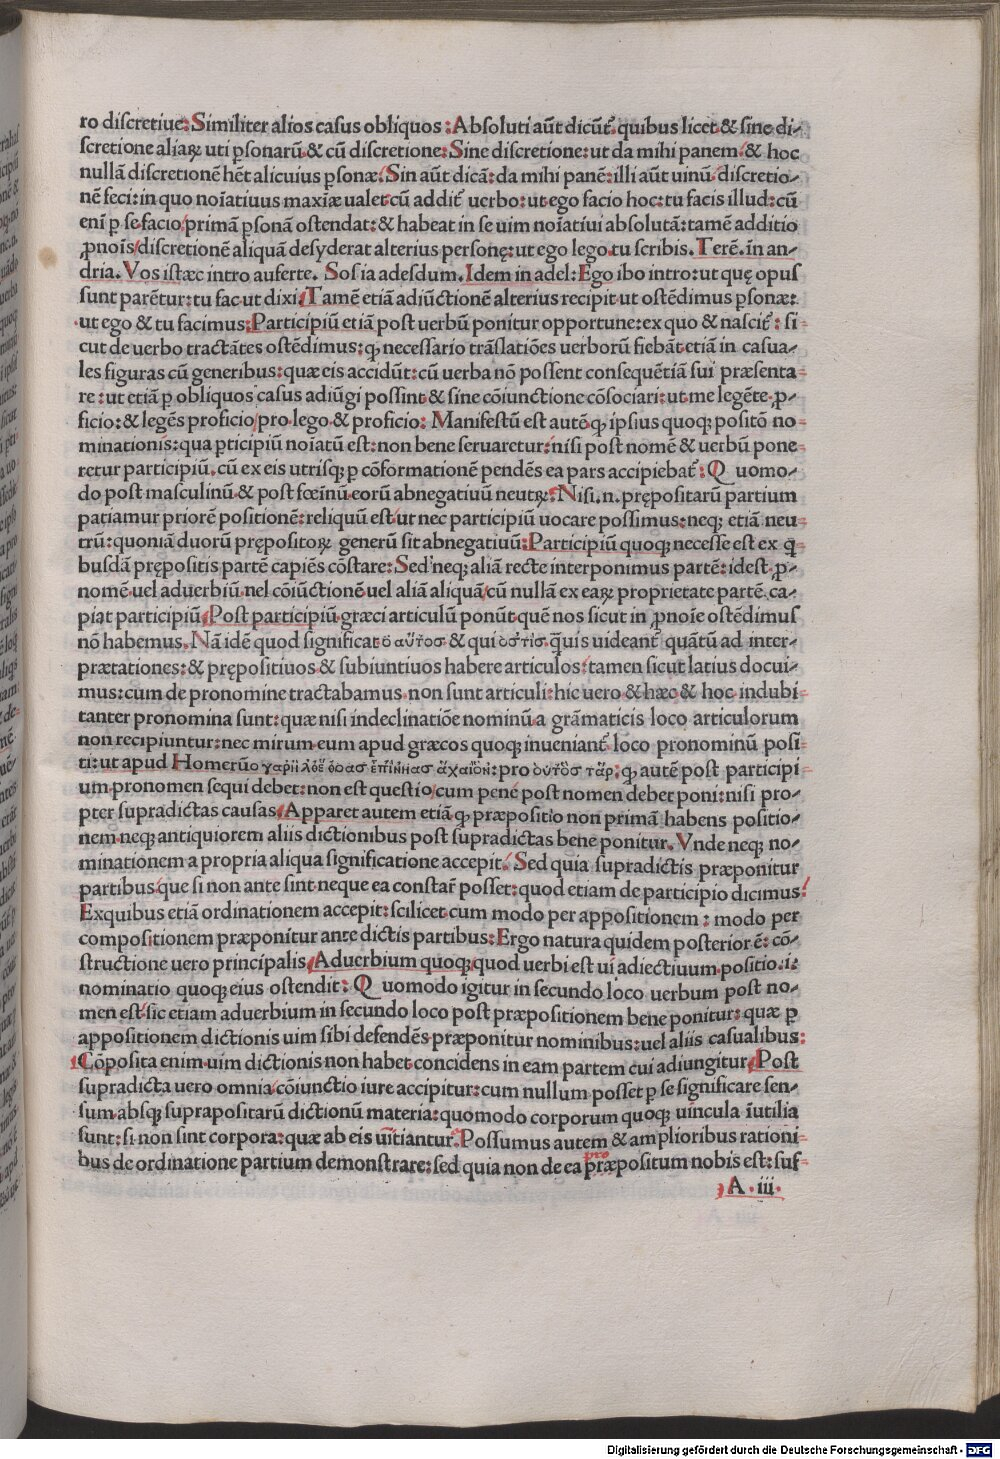 ro discretiue: Similiter alios casus obliquos: Absoluti aūt dicūt᷑. quibus licet & sine di-
scretione aliaꝝ uti ꝑsonarū & cū discretione: Sine discretione: ut da mihi panem. & hoc
nullā discretionē hēt alicuius ꝑsonæ. Sin aūt dicā: da mihi panē: illi aūt uinū. discretio-
nē feci: in quo noīatiuus maxīæ ualet cū addit᷑ uerbo: ut ego facio hoc: tu facis illud: cū
enī ꝑ se facio primā ꝑsonā ostendat: & habeat in se uim noīatiui absolutā: tamē additio
ꝓnoīs discretionē aliquā desyderat alterius personę: ut ego lego. tu scribis. Terē. īn an-
dria. Vos istæc intro auferte. Sosia adesdum. Idem in adel: Ego ibo intro: ut quę opus
sunt parētur: tu fac ut dixi. Tamē etiā adiūctionē alterius recipit ut ostēdimus ꝑsonæ:
ut ego & tu facimus: Participiū etiā post uerbū ponitur opportune: ex quo & nascit᷑: si-
cut de uerbo tractātes ostēdimus: ꝙ necessario trāslatiōes uerborū fiebāt etiā in casua-
les figuras cū generibus: quæ eis accidūt: cū uerba nō possent consequētiā sui præsenta-
re: ut etiā ꝑ obliquos casus adiūgi possint & sine cōiunctione cōsociari: ut me legēte. ꝓ-
ficio: & legēs proficio pro lego & proficio: Manifestū est autē ꝙ ipsius quoqꝫ positō no-
minationis: qua ꝑticipiū noīatū est: non bene seruaretur: nisi post nomē & uerbū pone-
retur participiū. cū ex eis utrisqꝫ ꝑ cōformationē pendēs ea pars accipiebat᷑: Quomo-
do post masculinū & post fœīnū eorū abnegatiuū neutꝝ: Nisi .n. prępositarū partium
patiamur priorē positionē: reliquū est ut nec participiū uocare possimus: neqꝫ etiā neu-
trū: quoniā duorū prępositoꝝ generū sit abnegatiuū: Participiū quoqꝫ necesse est ex q̄-
busdā prępositis partē capiēs cōstare: Sed neqꝫ aliā recte interponimus partē: idest. ꝓ-
nomē uel aduerbiū. nel cōiūctionē uel aliā aliquā cū nullā ex eaꝝ proprietate partē. ca-
piat participiū. Post participiū græci articulū ponūt quē nos sicut in ꝓnoīe ostēdimus
nō habemus. Nā idē quod significat ὁ αὖτοσ & qui οστισ. q̄uis uideant᷑ quātū ad inter-
prætationes: & prępositiuos & subiuntiuos habere articulos: tamen sicut latius docui-
mus: cum de pronomine tractabamus non sunt articuli: hic uero & hæc & hoc indubi-
tanter pronomina sunt: quæ nisi in declinatiōe nominū a grāmaticis loco articulorum
non recipiuntur: nec mirum eum apud græcos quoqꝫ inueniant᷑ loco pronominū posi-
ti: ut apud Homerū pro οὑτὸσ ταρ: ꝙ autē post participi-
um pronomen sequi debet: non est questio cum pene post nomen debet poni: nisi pro-
pter supradictas causas. Apparet autem etiā ꝙ præpositio non primā habens positio-
nem neqꝫ antiquiorem aliis dictionibus post supradictas bene ponitur. Vnde neqꝫ no-
minationem a propria aliqua significatione accepit. Sed quia supradictis præponitur
partibus que si non ante sint neque ea constar᷑ posset: quod etiam de participio dicimus:
Exquibus etiā ordinationem accepit: scilicet cum modo per appositionem: modo per
compositionem præponitur ante dictis partibus: Ergo natura quidem posterior ē: cō-
structione uero principalis. Aduerbium quoqꝫ quod uerbi est ui adiectiuum positio .i.
nominatio quoqꝫ eius ostendit: Quomodo igitur in secundo loco uerbum post no-
men est sic etiam aduerbium in secundo loco post præpositionem bene ponitur: quæ ꝑ
appositionem dictionis uim sibi defendēs præponitur nominibus: uel aliis casualibus:
Cōposita enim uim dictionis non habet concidens in eam partem cui adiungitur. Post
supradicta uero omnia cōiunctio iure accipitur: cum nullum posset ꝑ se significare sen-
sum absqꝫ suprapositarū dictionū materia: quomodo corporum quoqꝫ uincula īutilia
sunt: si non sint corpora: quæ ab eis uītiantur. Possumus autem & amplioribus rationi-
bus de ordinatione partium demonstrare: sed quia non de ea præpositum nobis est: suf-
A. iii.
Digitalisierung gefördert durch die Deutsche Forschungsgemeinschaft - DFG